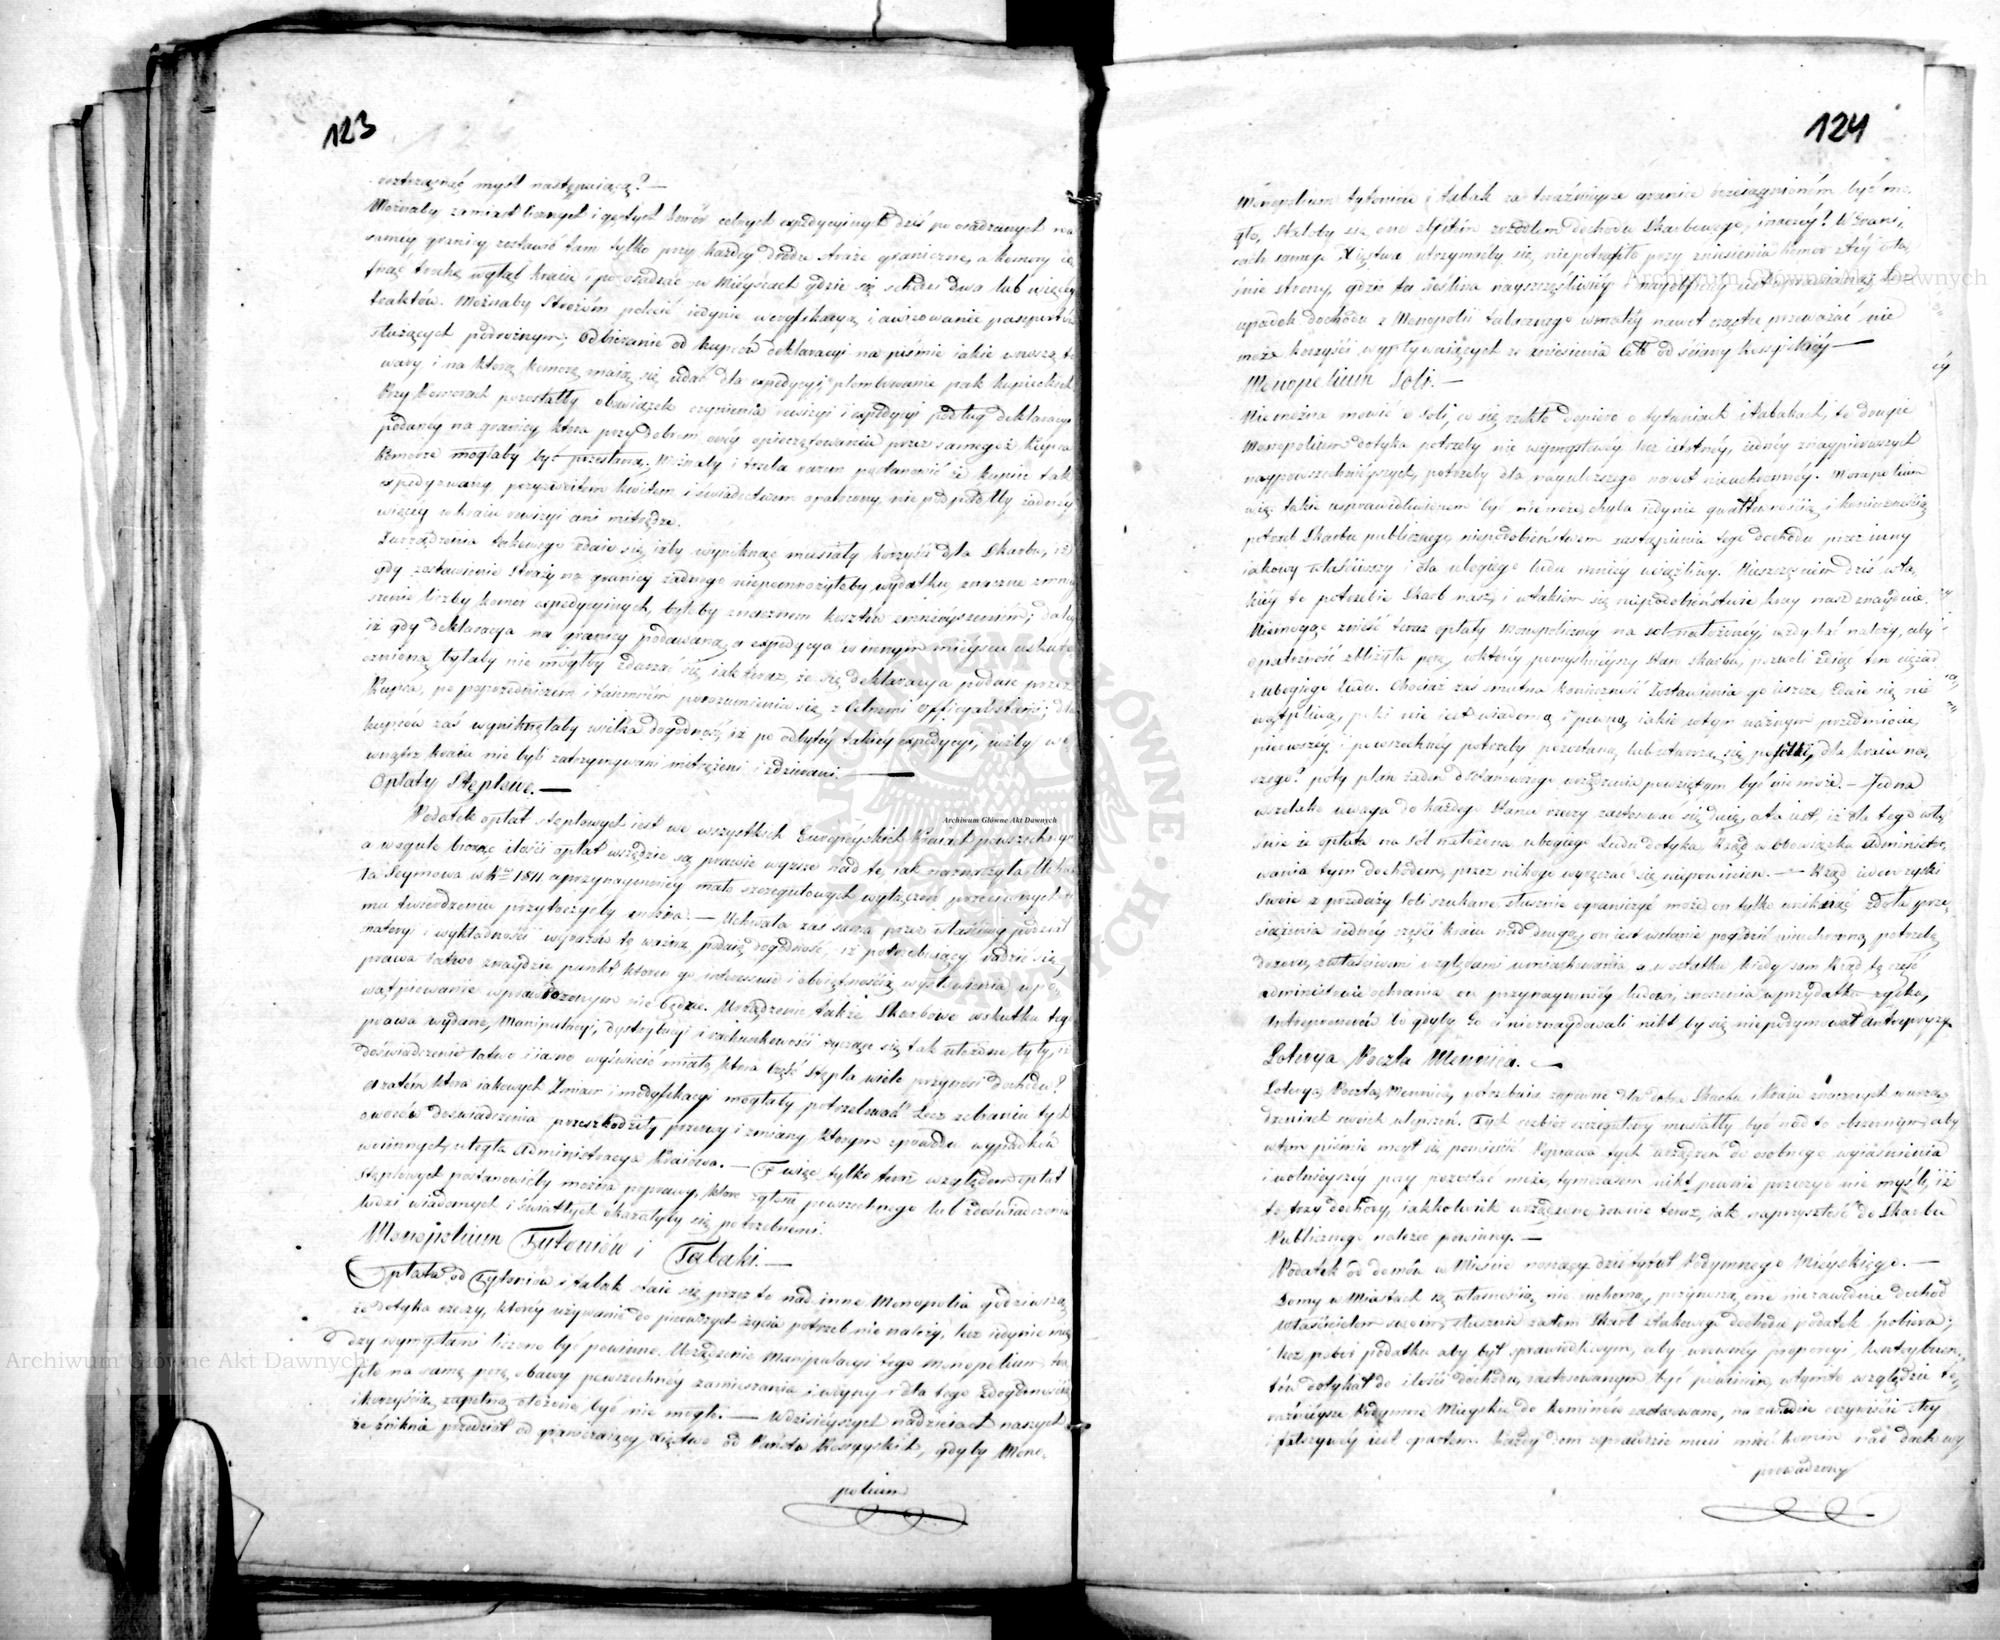 123
roztrząsnąć myśl następuiącą? —
Możnaby zamiast licznych i gęstych komór celnych expedycyinych dziś po osadzanych na
samey granicy zostawić tam tylko przy każdey drodze straże graniczne, a komory co
fnąć trochę wgłąb kraiu i po osadzać w Mieyscach gdzie się schodzi dwa lub więcey
traktów. Możnaby Strożóm polecić iedynie weryfikacyą i awizowanie paszportów
służących podróżnym; Odbieranie od kupców deklaracyi na piśmie iakie wnoszą to
wary i na którą komorę maią się udać dla expedycyi, plombowanie pak kupieckich
Przy komorach pozostałby obowiązek czynienia rewizyi i expedycyi podług deklaracyi
podaney na granicy, która przy dobrem oney opieczętowaniu przez samegoż kupca
komorze mogłaby być przesłaną. Możnaby i trzeba razem postanowić że kupiec tak
expedyowany przyzwoitem kwitem i świadectwem opatrzony, nie podpadłby żadney
więcey w kraiu rewizyi ani mitrędze.
Zurządzenia takowego zdaie się, iżby wyniknąć musiały korzyści dla Skarbu, iż
gdy zostawienie Straży na granicy żadnego niepomnożyłoby wydatku, znaczne zmniey
szenie liczby komor expedycyinych, byłoby znacznem kosztów zmnieyszeniem; daley
iż gdy deklaracya na granicy podawana, a expedycya w innym mieyscu uskute
czniona byłaby nie mógłby zdarzać się, iak teraz, że się deklaracya podaie przez
Kupca, po poprzedniczem i tamoznim porozumieniu się z Celnemi Officyalistami; dla
kupców zaś wyniknęłaby wielka dogodność, iż po odbytey takiey expedycyi, iużby we
wnątrz kraiu nie byli zatrzymywani, mitrężeni i zdzierani. —
Opłaty Stęplowe. —
Podatek opłat stęplowych iest we wszystkich Europeyskich Kraiach powszechnym
a wogule biorąc ilości opłat wszędzie są prawie wyższe nad te, iak naznaczyła Uchwa
ła Seymowa w Ru 1811 a przynaymniey mało szczegułowych wyłączeń przeciwnych te
mu twierdzeniu przytoczyćby można. — Uchwała zaś sama przez właściwy podział
materyi i wykładności wyrazów tę ważną podaie dogodność, iż potrzebuiący radzić się
prawa łatwo znaydzie punkt ktoren go interessuie i obiętnością wysłowienia w po
wątpiewanie wprowadzonym nie będzie. Urządzenie także Skarbowe wskutku tego
prawa wydane, Manipulacyi, dystrybucyi i rachunkowości tyczące się tak ułożone były, iż
doświadczenie łatwo i iasno wyświecić miało, która Część Stępla wiele przynosi dochodu?
a zatém która iakowych Zmian i modyfikacyi mogłaby potrzebować? Lecz zebraniu tych
owoców doświadczenia przeszkodziły przerwy i zmiany, którym sprawdu wypadków
woiennych uległa Administracya Kraiowa. — Te więc tylko teraz względem opłat
Stęplowych postanowićby można poprawy, które zgłosu powszechnego lub z doświadczenia
ludzi wiadomych i światłych okazałyby się potrzebnemi.
Monopolium Tytoniów i Tabaki. —
Opłata od Tytoniów i tabak staie się przez to nad inne Monopolia godziwszą
że dotyka rzeczy, którey używanie do pierwszych życia potrzeb nie należy, lecz iedynie mię
dzy wymysłami liczone być powinno. Urządzenie Manipulacyi tego monopolium tra
fiło na samą porę obawy powszechney zamieszania i woyny i dla tego zdogodnością
i korzyścią zupełną ułożone być nie mogło. — W dzisieyszych nadzieiach naszych
że zniknie przedział od graniczaiący Xięstwo od Państw Rossyyskich, gdyby Mono-
polium
124
Monopolium tytoniu i tabak za teraźnieysze granice rozciągnioném być mo
gło, stałoby się ono obfitém zrzódłem dochodu Skarbowego, inaczey! W grani,
cach samego Xięstwa utrzymaćby się niepotrafiło przy zniesieniu komor z tey wła,
śnie strony, gdzie ta roślina nayszczęśliwiey i nayobficiey iest uprawianą, lecz
upadek dochodu z Monopolii tabacznego wmałey nawet cząstce przeważać nie
może korzyści wypływaiących ze zniesienia Ceł od ściany Rossyiskiéy —
Monopolium Soli. —
Nie można mówić o Soli, co się rzekło dopiero o tytuniach i tabakach, to drugie
Monopolium dotyka potrzeby nie wymysłowéy lecz istotnéy, iednéy znaypierwszych
naypowszechnieyszych, potrzeby dla nayuboższego nawet nieuchronnéy. Monopolium
więc takie usprawiedliwionem być niemoże, chyba iedynie gwałtownością i koniecznością
potrzeb Skarbu publicznego, niepodobieństwem zastąpienia tego dochodu przez inny
iakowy właściwszy i dla ubogiego ludu mniey uciążliwy. Nieszczęściem dziś w ta,
kiéy to potrzebie Skarb nasz, i wtakiém się niepodobieństwie kray nasz znayduie.
Niemogąc znieść teraz opłaty monopoliczney na sol nałożonéy, wzdychać należy, aby
opatrzność zbliżyła porę, wktóréy pomyślnieyszy Stan Skarbu, pozwoli zdiąć ten ciężar
z ubogiego Ludu. Chociaż zaś smutna konieczność Zostawienia go ieszcze zdaie się nie
wątpliwą, póki nie iest wiadomą i pewną iakie wtym ważnym przedmiocie,
pierwszéy i powszechnéy potrzeby pozostaną, lub otworzą się posiłki, dla kraiu na,
szego? póty plan żaden dostatecznego urządzenia powziętym być nie może. — Jedna
wszelako uwaga do każdego Stanu rzeczy zastosować się daie, a ta iest, iż dla tego właśnie
śnie że opłata na Sól nałożona ubogiego Ludu dotyka, Rząd w obowiązku administro,
wania tym dochodem przez nikogo wyręczać się niepowinien. — Rząd ieden zyski
Swoie z przedaży Soli szukane słusznie ograniczyć może, on tylko uniknąć zdoła prze,
ciążenia iednéy części kraiu nad drugą, on iest wstanie pogodzić nieuchronną potrzebę
dozoru, z właściwemi względami umiarkowania a w ostatku kiedy sam Rząd tę część
administruie ochrania on przynaymniéy ludowi, znoszenia wprzydatku zysków
Antreprenerów bo gdyby Go ci nieznaydowali nikt by się niepodymował Antrepryzy
Loterya Poczta Mennica. —
Loterya, Poczta, Mennica, potrzebuie zapewne dla dobra Skarbu i Kraiu znacznych wurzą,
dzeniach swoich ulepszeń. Tych rozbiór szczegułowy musiałby być nad to obszernym, aby
wtém piśmie mógł się pomieścić Poprawa tych urządzeń do osobnego wyiaśnienia
i wolnieyszéy pory pozostać może, tymczasem nikt pewnie przeczyć nie myśli, iż
te trzy dochody, iakkolwiek urządzone równie teraz, iak naprzyszłość do Skarbu
Publicznego należeć powinny. —
Podatek od domów w Mieście noszący dziś tytuł Podymnego Mieyskiego. —
Domy w Miastach są własnością nie ruchomą, przynoszą one niezawodnie dochód
właścicielom swoim, słusznie zatem Skarb z takowego dochodu podatek pobiera;
lecz pobór podatku aby był sprawiedliwym, aby wrówney proporcyi kontrybuen,
tów dotykał do ilości dochodu, zastosowanym być powinien, wtymto względzie te,
raźnieysze Podymne Mieyskie do kominów zastosowane, na zasadzie oczywiście złey
i fałszywéy iest opartem. Każdy dom wprawdzie musi mieć komin nad dach wy
prowadzony